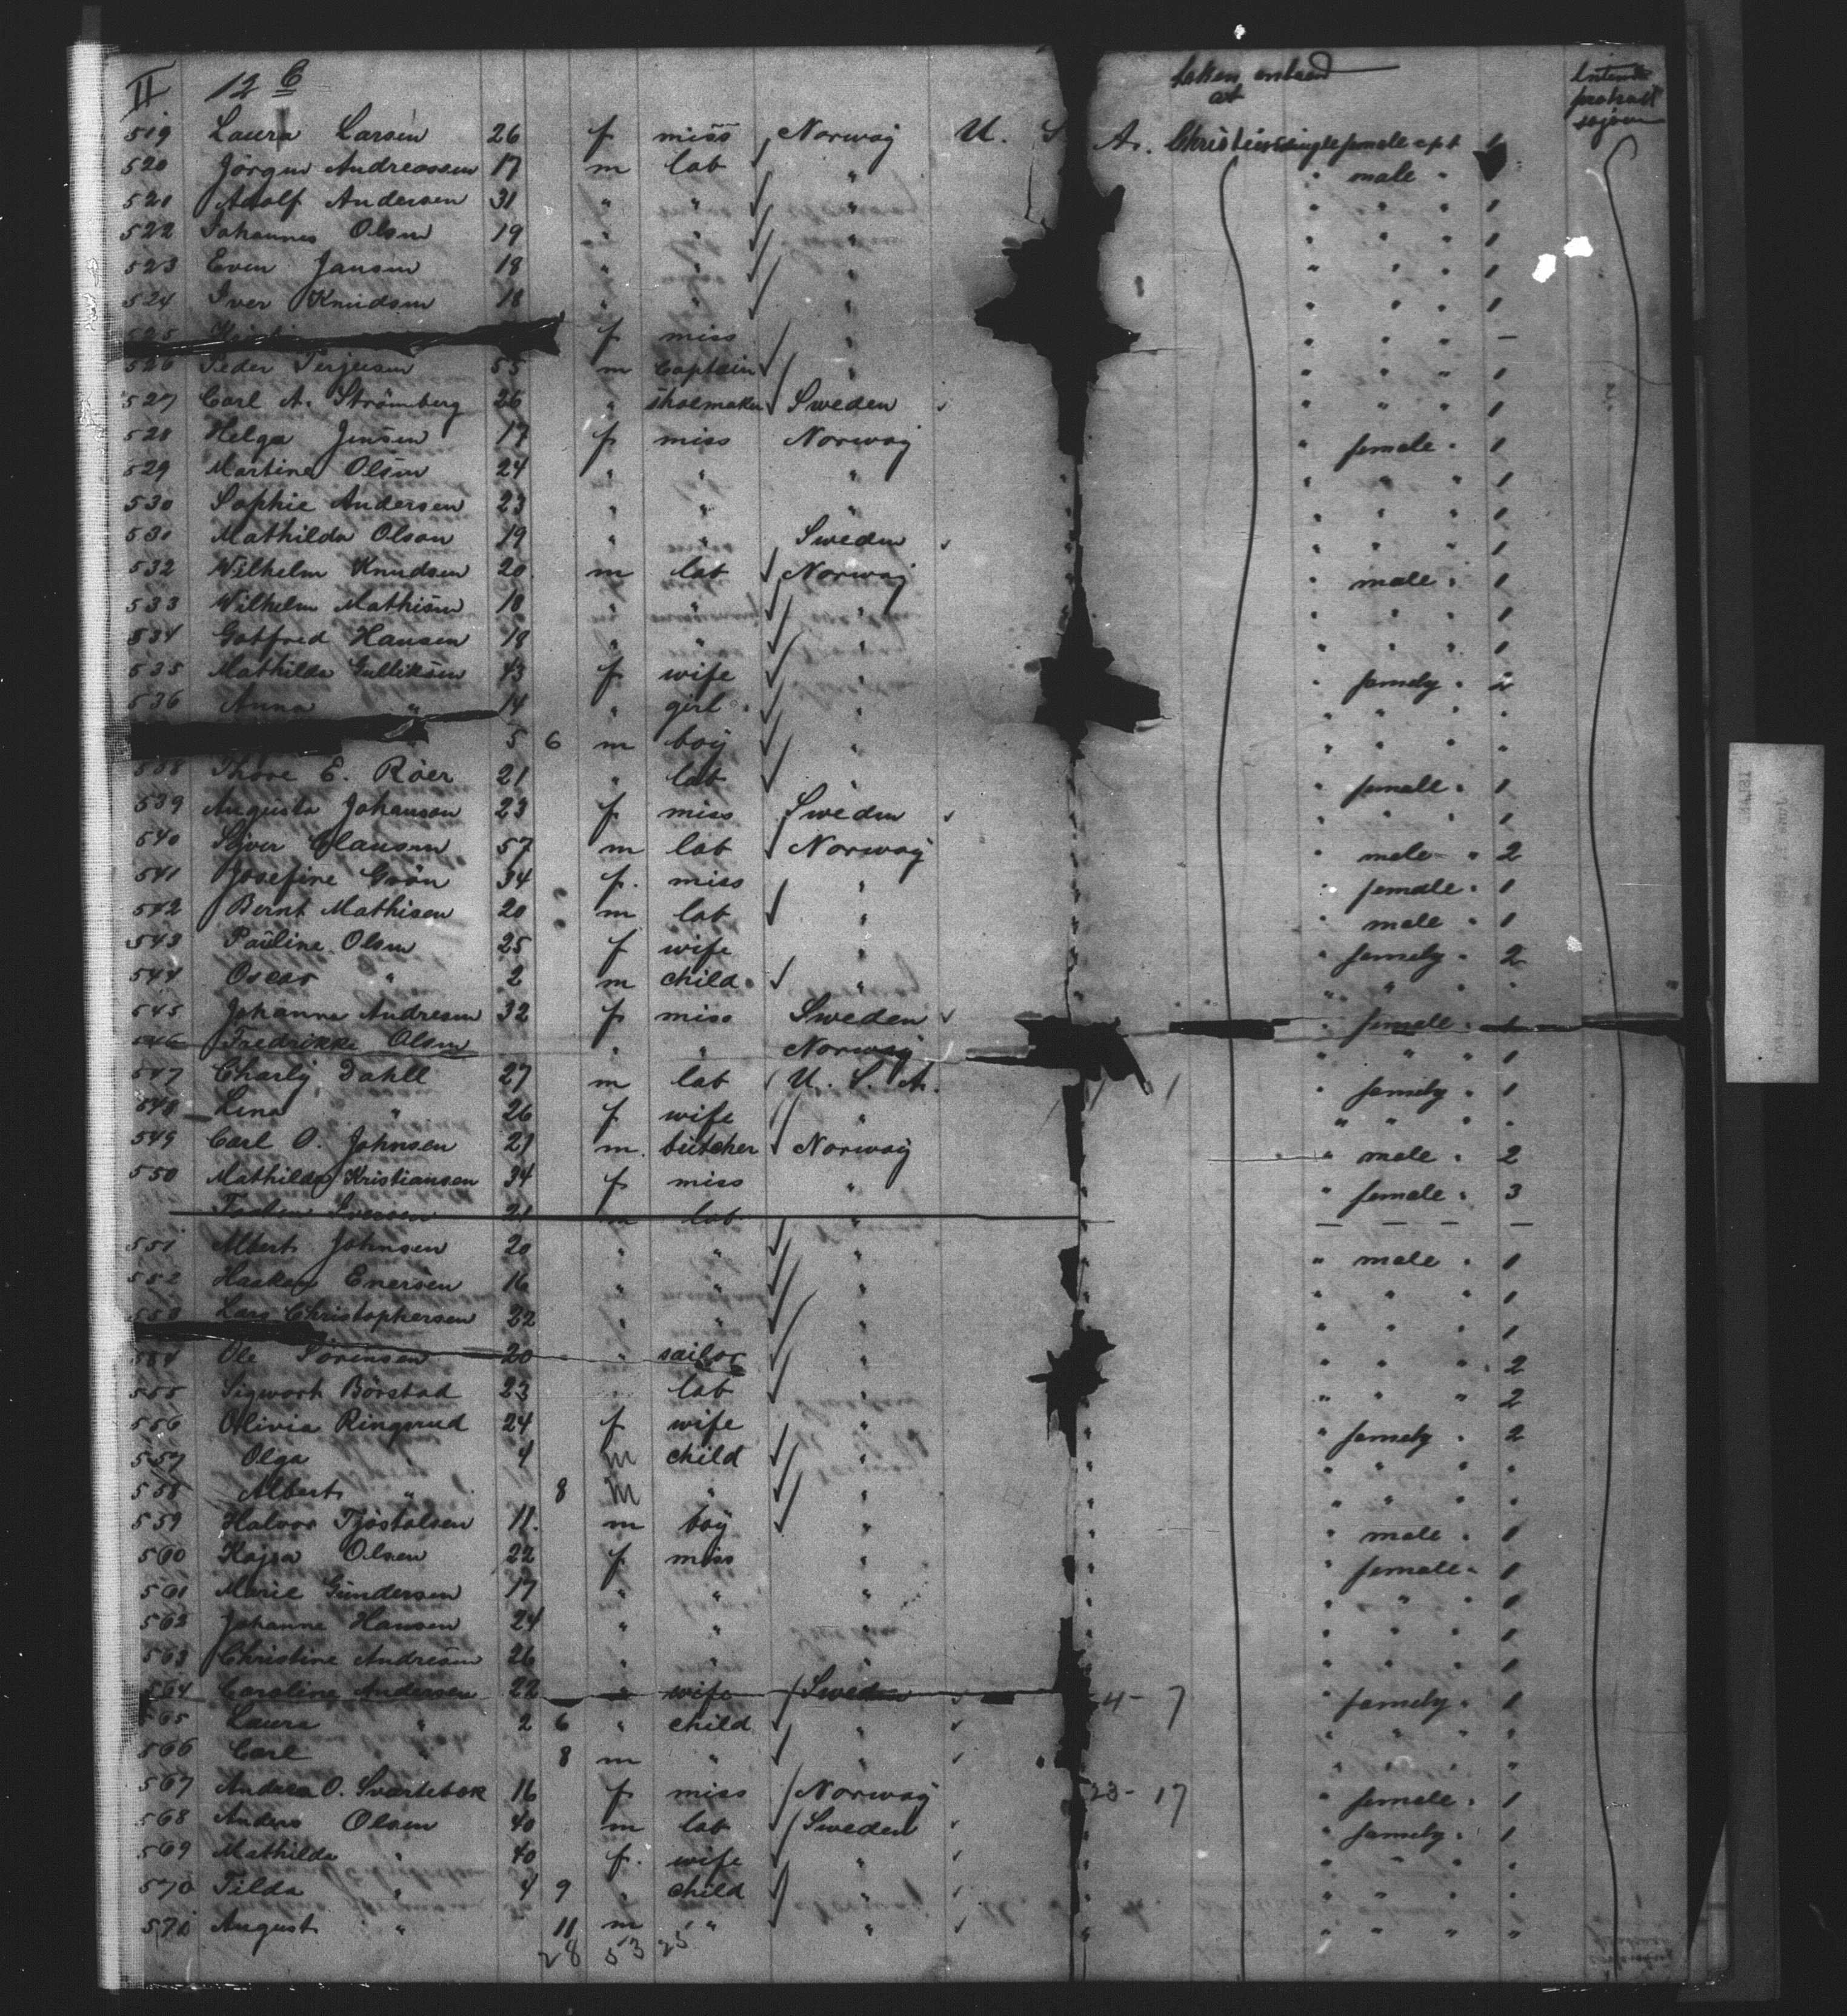 II 12 C taken onboard at Intended protract sojourn
519 Laura Larsen 26 f miss Norway U. S. A. Christiania single female cpt 1
520 Jörgen Andreassen 17 m lab " " male "
521 Adolf Andersen 31 " " " " " " 1
522 Johannes Olsen 19 " " " " " " 1
523 Even Jansen 18 " " " " " " 1
524 Iver Knudsen 18 " " " " " " 1
525 f miss " " " " —
526 Peder Terjesen 55 m Captain " " " " 1
527 Carl A. Strömberg 26 " shoemaker Sweden " " " 1
528 Helga Jensen 17 f miss Norway " female " 1
529 Martine Olsen 24 " " " " " " 1
530 Sophie Andersen 23 " " " " " " 1
531 Mathilda Olson 19 " " Sweden " " " 1
532 Wilhelm Knudsen 20 m lab Norway " male " 1
533 Wilhelm Mathisen 18 " " " " " " 1
534 Gotfred Hansen 18 " " " " " " 1
535 Mathilda Gulliksen 43 f wife " " famely " 2
536 Anna " 14 " girl " " " " "
5 6 m boy " " " " "
538 Thore E. Röer 21 " lab " female " 1
539 Augusta Johanson 23 f miss Sweden " " " 1
540 Siver Clausen 57 m lab Norway " male " 2
541 Josefine Grön 34 f. miss " " female " 1
542 Bernt Mathisen 20 m lab " " male " 1
543 Pauline Olsen 25 f wife " " famely " 2
544 Oscar " 2 m child " " " " "
545 Johanne Andresen 32 f miss Sweden " female " 1
546 Fredrikke Olsen " " Norway " " " 1
547 Charly Dahll 27 m lab U. S. A. " famely " 1
548 Lina " 26 f wife " " " " "
549 Carl O. Johnsen 21 m. butcher Norway " male " 2
550 Mathilda Kristiansen 34 f miss " " female " 3
Iversen 21 m lab " — — — —
551 Albert Johnsen 20 " " " " male " 1
552 Haakon Enersen 16 " " " " " " 1
553 Lars Christophersen 22 " " " " " " 1
554 Ole Sörensen 20 " sailor " " " " 2
555 Sigwort Börstad 23 " lab " " " " 2
556 Olivia Ringsrud 24 f wife " " famely " 2
557 Olga " 4 m child " " " " "
558 Albert " 8 m " " " " " "
559 Halvor Tjöstolsen 11. m boy " " male " 1
560 Kajsa Olsen 22 f miss " " female " 1
561 Marie Gundersen 17 " " " " " " 1
562 Johanne Hansen 24 " " " " " " 1
563 Christine Andresen 26 " " " " " " 1
564 Caroline Andersen 22 " wife Sweden 4- 7 " famely " 1
565 Laura " 2 6 " child " " " " "
566 Carl " 8 m " " " " " "
567 Andrea O. Svartebæk 16 f miss Norway 23- 17 " female " 1
568 Anders Olsen 40 m lab Sweden " famely " 1
569 Mathilda " 40 f. wife " " " " "
570 Tilda " 4 9 " child " " " " "
571 August " 11 m " " " " " "
28 53 25